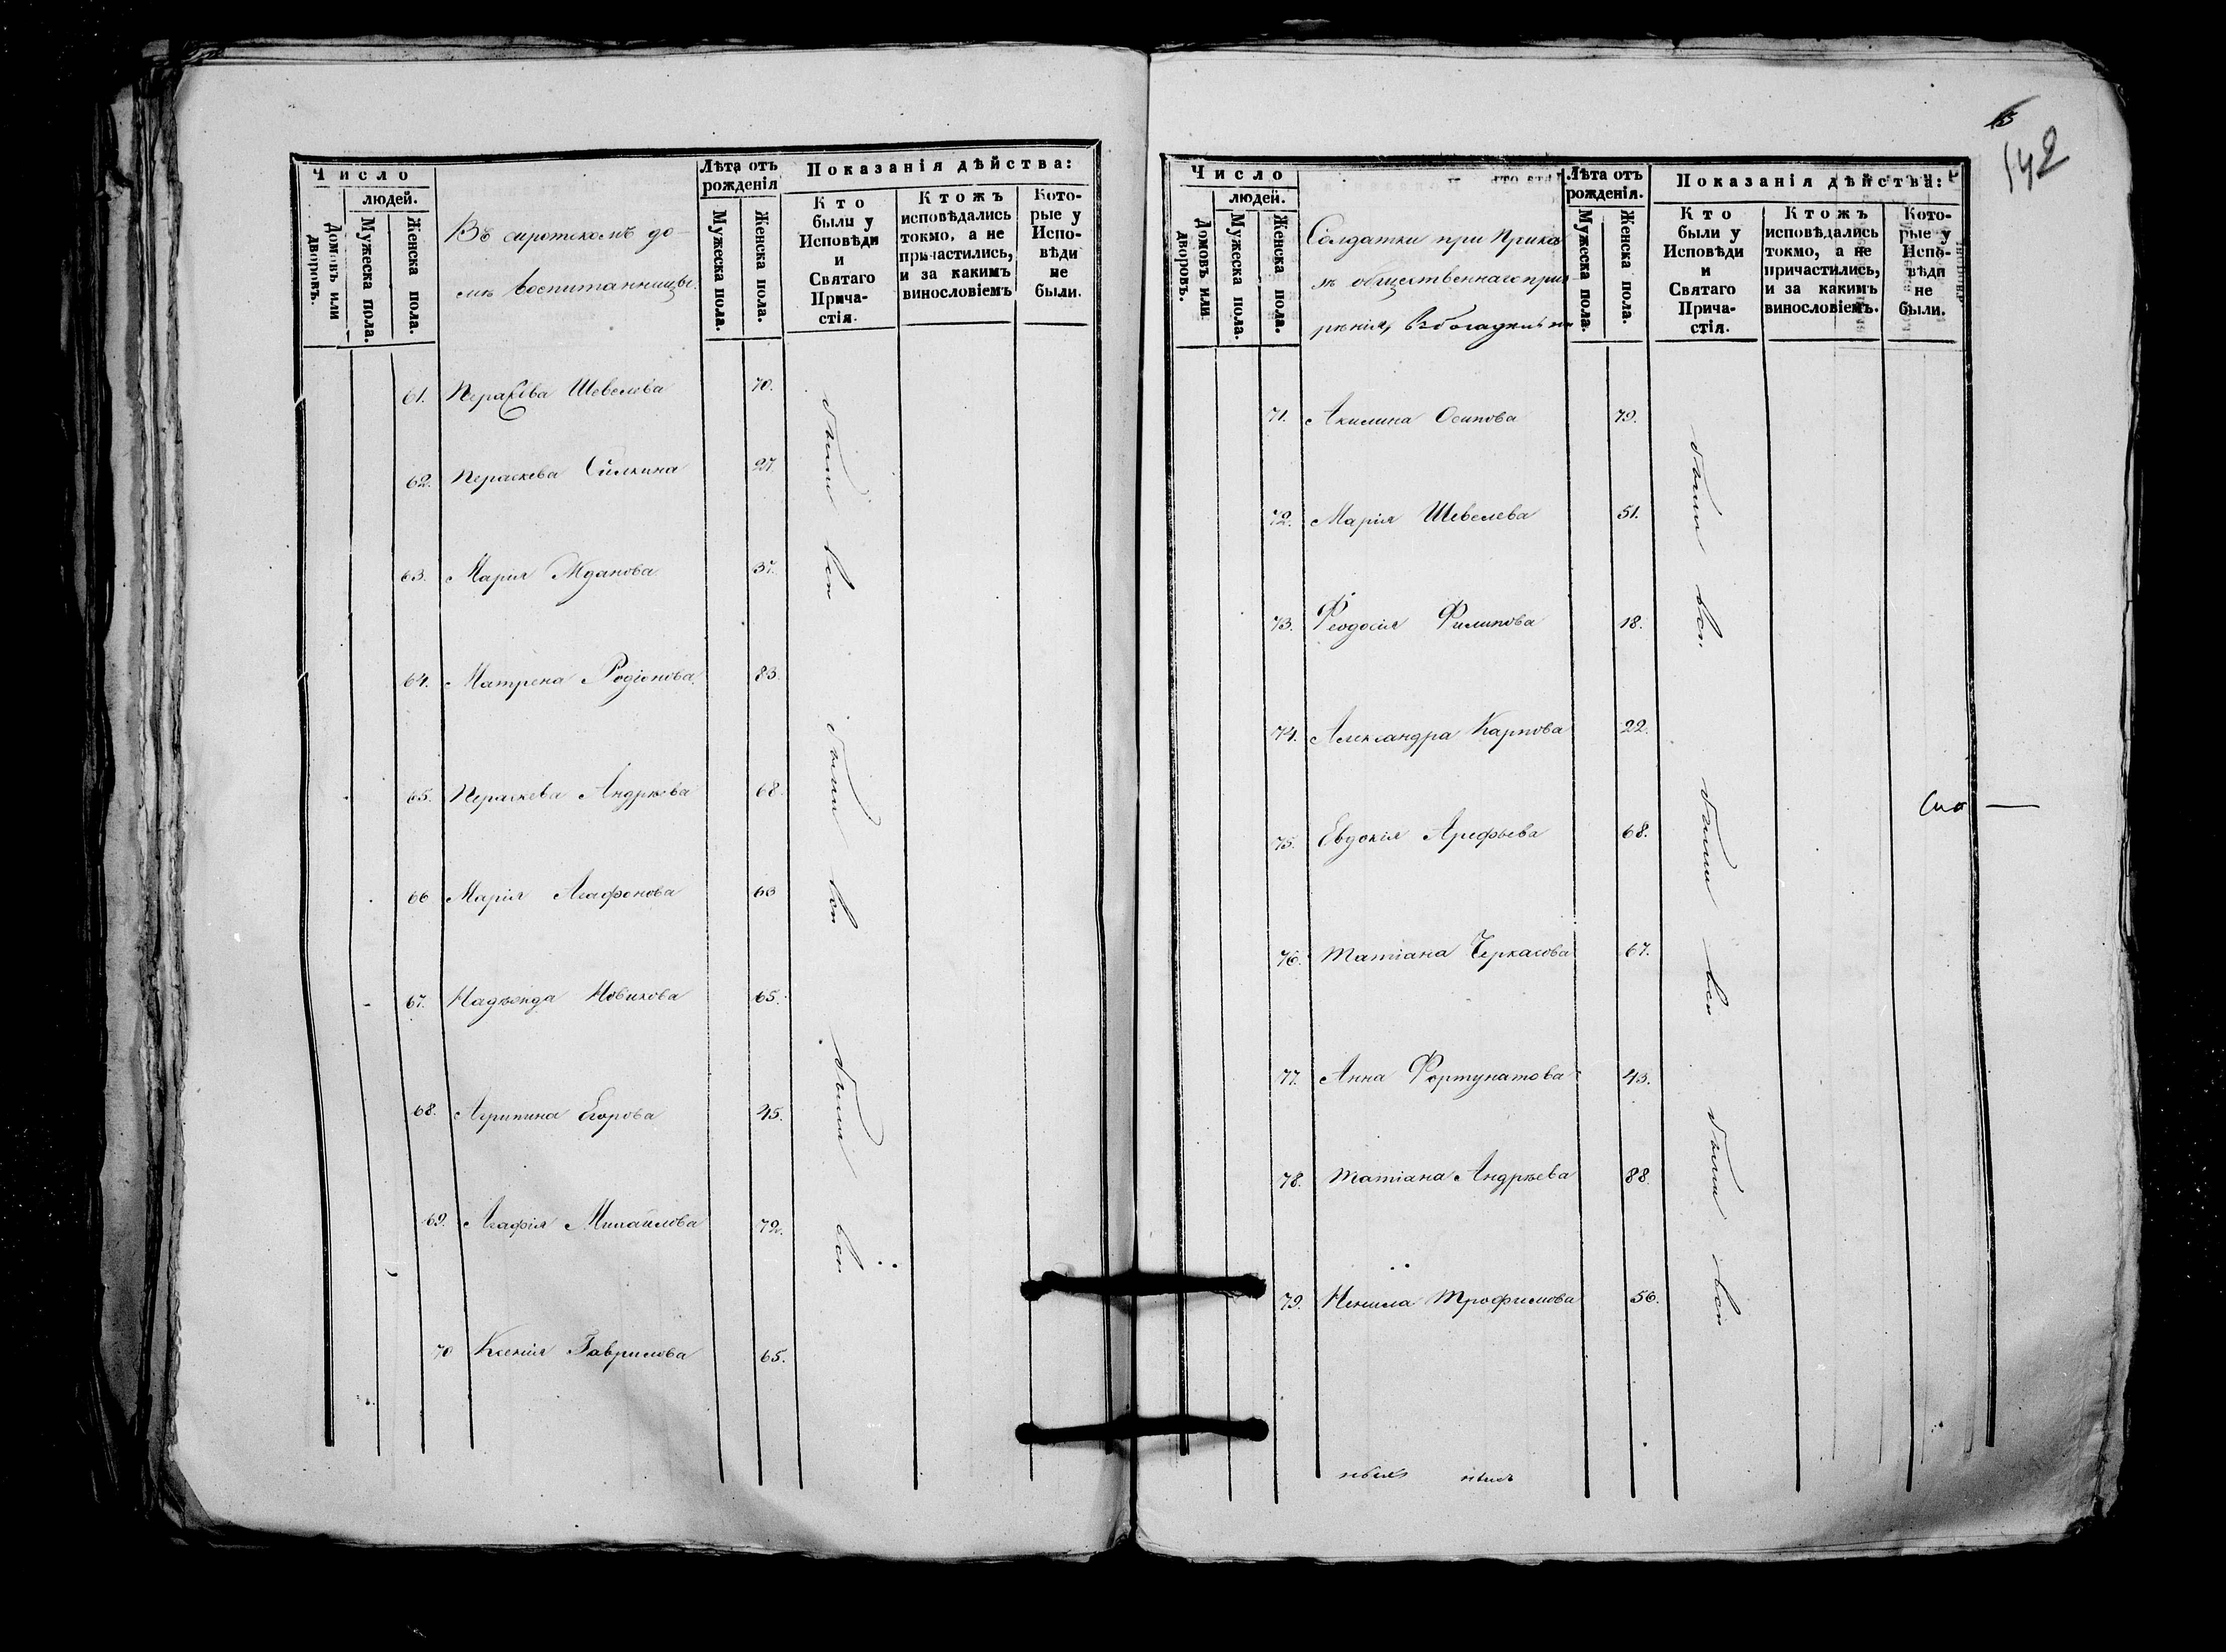 Число
людей.
Домовъ или дворовъ.
Мужеска пола.
Женска пола.
Въ сиротскомъ до-
мѣ воспитанницы.
Лѣта отъ
рожденія
Мужеска пола.
Женска пола.
Показанія дѣйства:
Кто
были у
Исповѣди
и
Святаго
Прича-
стія.
Ктожъ
исповѣдались
токмо, а не
причастились,
и за какимъ
винословіемъ
Кото-
рые у
Испо-
вѣди
не
были.
61. Параскева Шевелева 70.
62. Параскева Силкина 27.
63. Марія Жданова 37.
были вси
64. Матрена Родіонова 83.
65. Параскева Андрѣева 68.
66 Марія Агафонова 63
были вси
67. Надежда Новикова 65.
68. Агрипина Егорова 45.
69. Агафія Михайлова 72.
были вси
70 Ксенія Гаврилова 65.
142
Число
людей.
Домовъ или дворовъ.
Мужеска пола.
Женска пола.
Солдатки при Прика
зѣ общественнаго приз
рѣнія, въ богадельни
Лѣта отъ
рожденія.
Мужеска пола.
Женска пола.
Показанія дѣйства:
Кто
были у
Исповѣди
и
Святаго
Прича-
стія.
Ктожъ
исповѣдались
токмо, а не
причастились,
и за какимъ
винословіемъ.
Кото-
рые у
Испо-
вѣди
не
были.
71. Акилина Осипова 79.
72. Марія Шевелева 51.
73. Феодосія Филипова 18.
были вси.
74. Александра Карпова 22.
75. Евдокія Арефьева 68.
76. Татіана Черкасова 67.
были вси
77. Анна Фортунатова 43.
78. Татіана Андрѣева 88.
79. Ненила Трофимова 56.
были вси